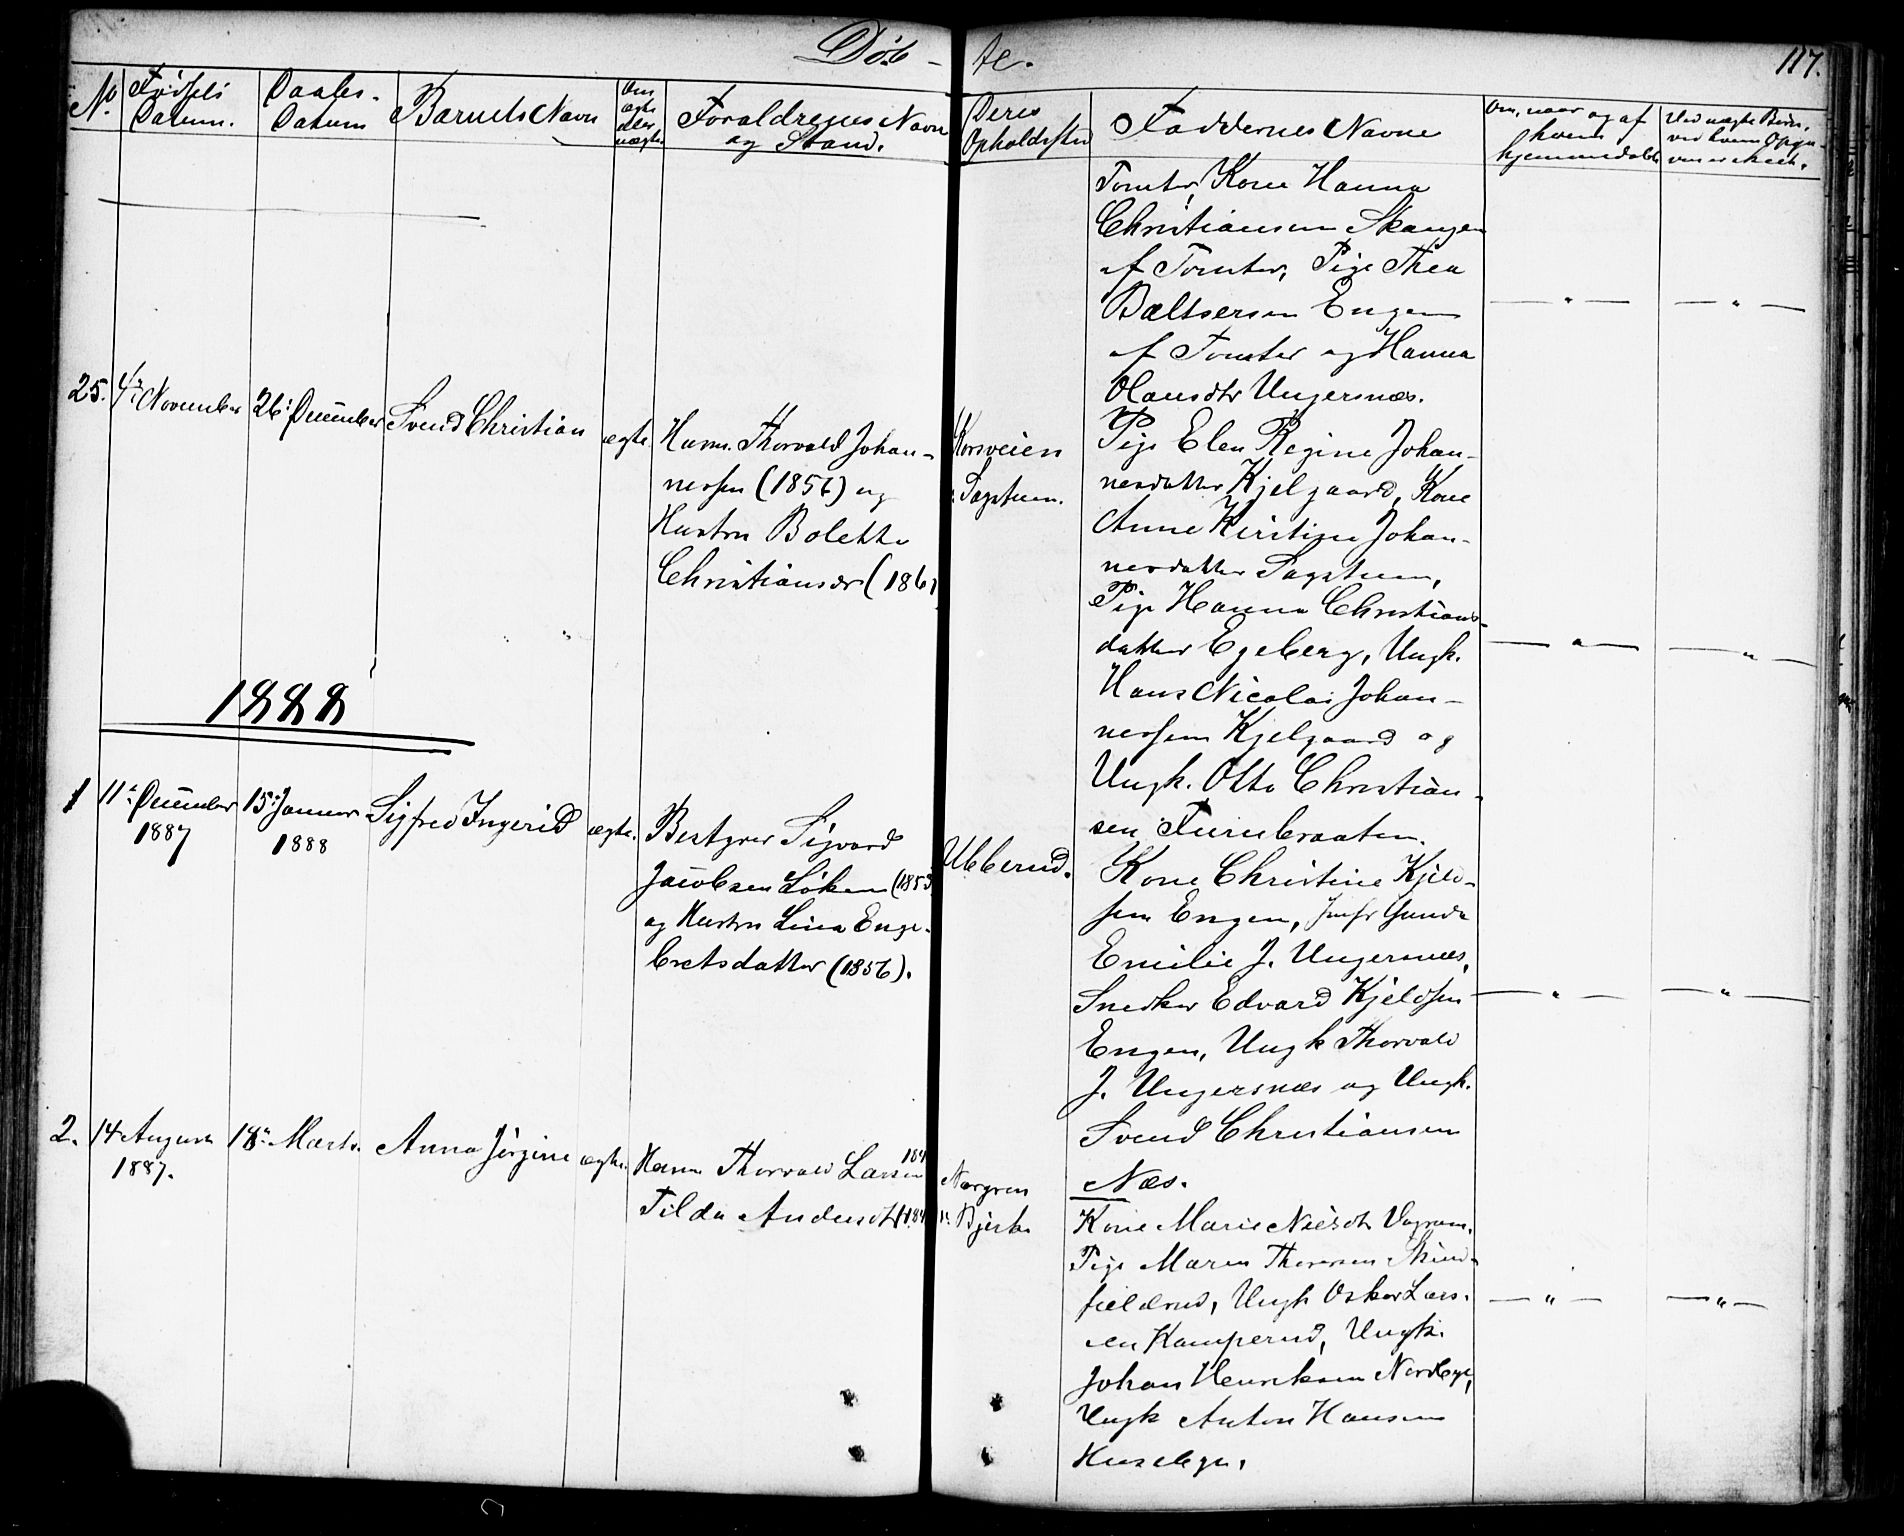 Døb - te.
117.
No
Fødsels
Datum.
Daabs-
Datum
Barnets Navn
Om
ægte
eller
uægte
Forældrenes Navn
og Stand.
Deres
Opholdssted
Faddernes Navne
Om, naar og af
hvem
hjemmedøbt
Ved uægte Børn,
ved hvem Opgi-
ven er skeet.
Tomter, Kone Hanna
Christiansen Skaugen
af Tomter, Pige Thea
Baltsersen Engen
af Tomter og Hanna
Olausdtr Ungersnæs.
— " —
— " —
25.
4de November
26: December
Svend Christian
ægte.
Husm. Thorvald Johan-
nessen (1856) og
Hustru Bolette
Christiansdr (1861
Korsveien
Sagstuen.
Pige Elen Regine Johan-
nesdatter Kjelgaard, Kone
Anne Kirstine Johan-
nesdatter Sagstuen,
Pige Hanna Christians-
datter Egeberg, Ungk.
Hans Nicolai Johan-
nessen Kjelgaard og
Ungk. Otto Christian-
sen Furubraaten.
— " —
— " —
1888
1
11te December
1887
15: Januar
1888
Sigfred Ingerid
ægte.
Bestyrer Sigvard
Jacobsen Løken (1853
og Hustru Lina Enge-
bretsdatter (1856).
Ubberud.
Kone Christine Kjeld-
sen Engen, Jmfr Gunda
Emilie J. Ungersnæs,
Snedker Edvard Kjeldsen
Engen, Ungk Thorvald
J. Ungersnæs og Ungk.
Svend Christiansen
Næs.
— " —
— " —
2.
14 August
1887.
18de Marts.
Anna Jørgine
ægte.
Husm Thorvald Larsen 184
Tilda Andersdtr 184
Norgren
u: Bjerke
Kone Marie Nielsdtr Vagram.
Pige Maren Thoresen Skind-
fielderud, Ungk Oskar Lars-
en Kamperud, Ungk.
Johan Henriksen Nordbye,
Ungk Anton Hansen
Husebye.
— " —
— " —